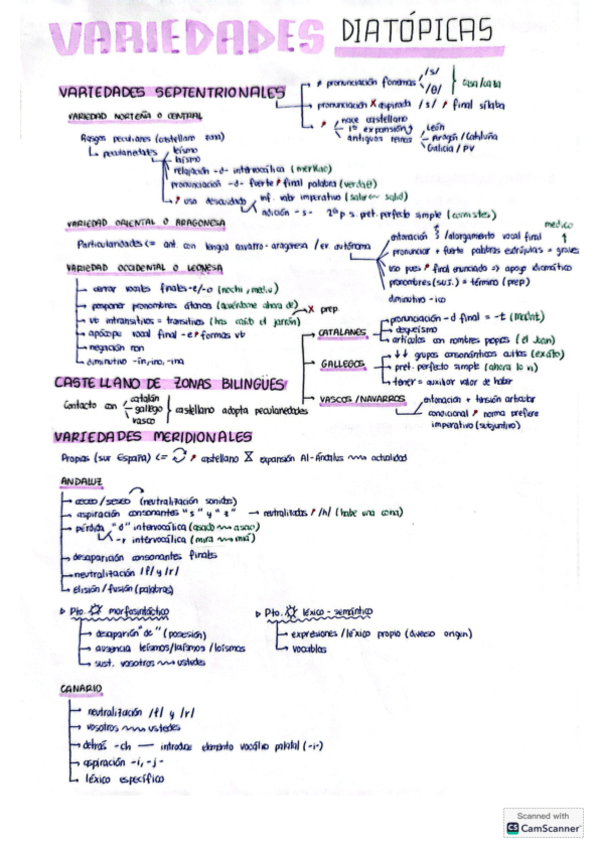 VARIEDADES DIATÓPICAS
VARIEDADES SEPTENTRIONALES
≠ pronunciación fonemas /s/ /θ/ } casa/caza
pronunciación X aspirada /s/ final sílaba
nace castellano
1ª expansión
antiguos reinos
León
Aragón / Cataluña
Galicia / PV
VARIEDAD NORTEÑA O CENTRAL
Rasgos peculiares (castellano zona)
peculiaridades
leísmo
laísmo
relajación -d- intervocálica
pronunciación -d- fuerte final palabra (verdaθ)
uso descuidado
inf. valor imperativo
adición -s- 2ª p s. pret. perfecto simple (comistes)
VARIEDAD ORIENTAL O ARAGONESA
Particularidades <= ant. con lengua navarro-aragonesa
entonación / alargamiento vocal final
pronunciar + fuerte palabras esdrújulas = graves
medico
uso pues final enunciado => apoyo
pronombres (suj.) = término (prep)
diminutivo -ico
VARIEDAD OCCIDENTAL O LEONESA
cerrar vocales finales -e/-o (nochi, mediu)
posponer pronombres átonos
X prep
vb intransitivos = transitivos (has caído el jarrón)
apócope vocal final -e formas vb
negación non
diminutivo -ín, ino, -ina
CASTELLANO DE ZONAS BILINGÜES
Contacto con catalán gallego vasco } castellano adopta peculiaridades
CATALANES
pronunciación -d final = -t
dequeísmo
artículos con nombres propios (el Juan)
GALLEGOS
↓↓ grupos consonánticos cultos
pret. perfecto simple (ahora lo vi)
tener = auxiliar valor de haber
VASCOS / NAVARROS
entonación + tensión articular
condicional norma prefiere
imperativo (subjuntivo)
VARIEDADES MERIDIONALES
Propias (sur España) <= castellano X expansión Al-Ándalus actualidad
ANDALUZ
ceceo / seseo (neutralización sonidos)
aspiración consonantes "s" y "z" → neutralizadas /h/
pérdida "d" intervocálica
-r intervocálica
desaparición consonantes finales
neutralización /l/ y /r/
elisión / fusión (palabras)
Pto. morfosintáctico
desaparición "de" (posesión)
ausencia leísmos/laísmos/loísmos
sust. vosotros ustedes
Pto. léxico - semántico
expresiones / léxico propio (diverso origen)
vocablos
CANARIO
neutralización /l/ y /r/
vosotros ustedes
detrás -ch — introduce elemento vocálico palatal (-i-)
aspiración -i, -j-
léxico específico
Scanned with
CS CamScanner